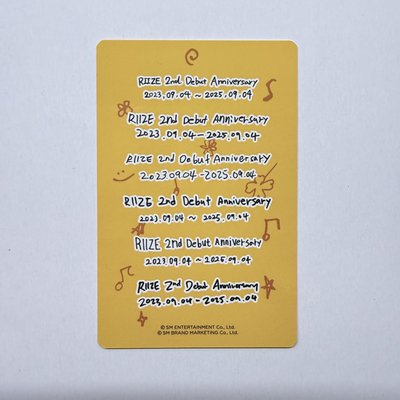 RIIZE 2nd Debut Anniversary
2023.09.04 ~ 2025.09.04
RIIZE 2nd Debut Anniversary
2023.09.04 - 2025.09.04
RIIZE 2nd Debut Anniversary
2023.09.04 - 2025.09.04
RIIZE 2nd Debut Anniversary
2023.09.04 ~ 2025.09.04
RIIZE 2nd Debut Anniversary
2023.09.04 ~ 2025.09.04
RIIZE 2nd Debut Anniversary
2023.09.04 - 2025.09.04
© SM ENTERTAINMENT Co., Ltd.
© SM BRAND MARKETING Co., Ltd.